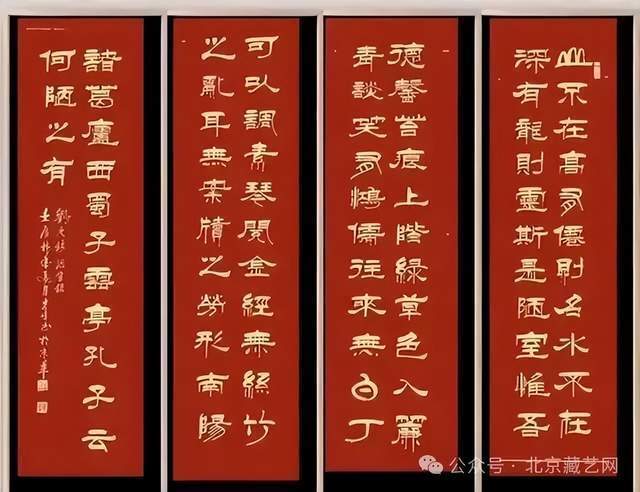 山不在高有僊則名水不在
深有龍則靈斯是陋室惟吾
德馨苔痕上階綠草色入簾
青談笑有鴻儒往來無白丁
可以調素琴閱金經無絲竹
之亂耳無案牘之勞形南陽
諸葛廬西蜀子雲亭孔子云
何陋之有
劉禹錫陋室銘
於京華
公众号·北京藏艺网